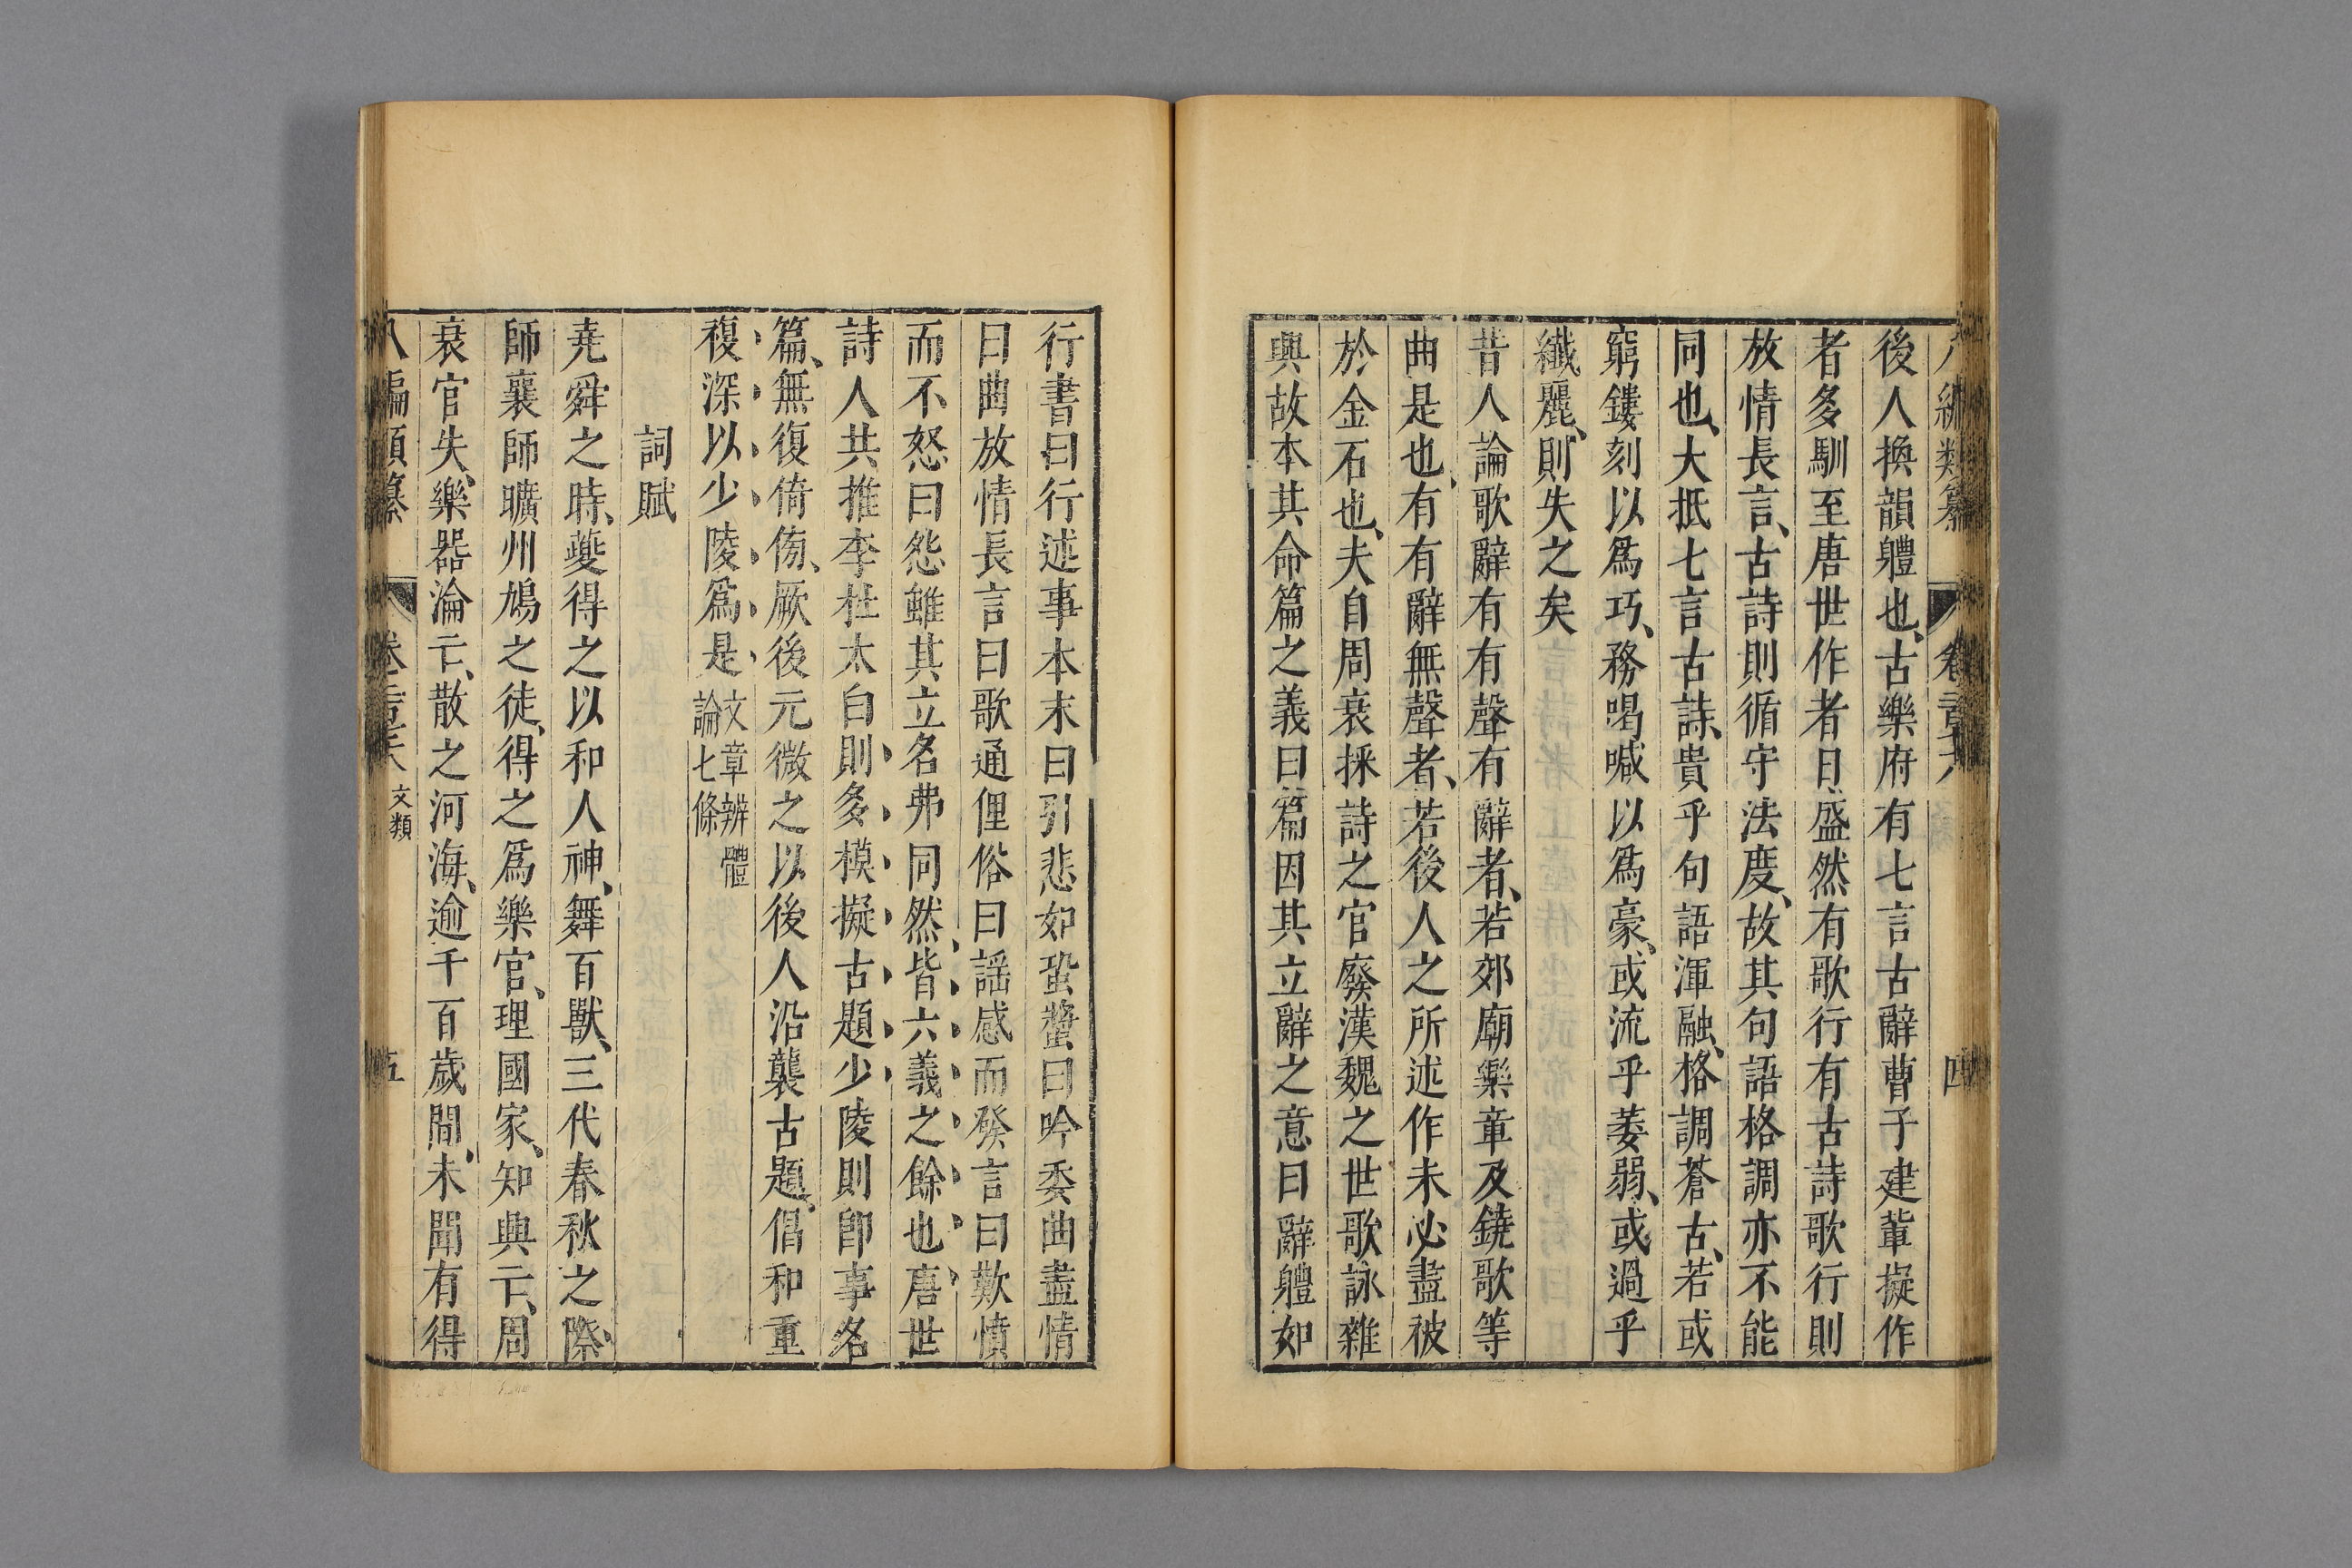 八編類纂 卷 六 四
後人換韻軆也、古樂府有七言古辭曹子建軰擬作
者多馴至唐世作者日盛然有歌行有古詩歌行則
放情長言、古詩則循守法度、故其句語格調亦不能
同也、大抵七言古詩、貴乎句語渾融、格調蒼古、若或
窮鏤刻以爲巧、務喝喊以爲豪、或流乎萎弱、或過乎
纖麗、則失之矣
昔人論歌辭有有聲有辭者、若郊廟樂章及鐃歌等
曲是也、有有辭無聲者、若後人之所述作未必盡被
於金石也、夫自周衰採詩之官廢漢魏之世歌詠雜
興故本其命篇之義曰篇因其立辭之意曰辭軆如
行書曰行述事本末曰引悲如蛩螿曰吟委曲盡情
曰曲放情長言曰歌通俚俗曰謡感而發言曰歎憤
而不怒曰怨雖其立名弗同然、皆六義之餘也、唐世
詩人共推李杜太白則多模擬古題少陵則卽事名
篇、無復倚傍、厥後元微之以後人沿襲古題、倡和重
複深以少陵爲是 文章辨體
論七條
詞賦
堯舜之時、夔得之以和人神、舞百獸、三代春秋之際、
師襄師曠州鳩之徒、得之爲樂官、理國家、知興亡、周
衰官失、樂器淪亡、散之河海、逾千百歲間、未聞有得
八編類纂 卷 六 文類 五